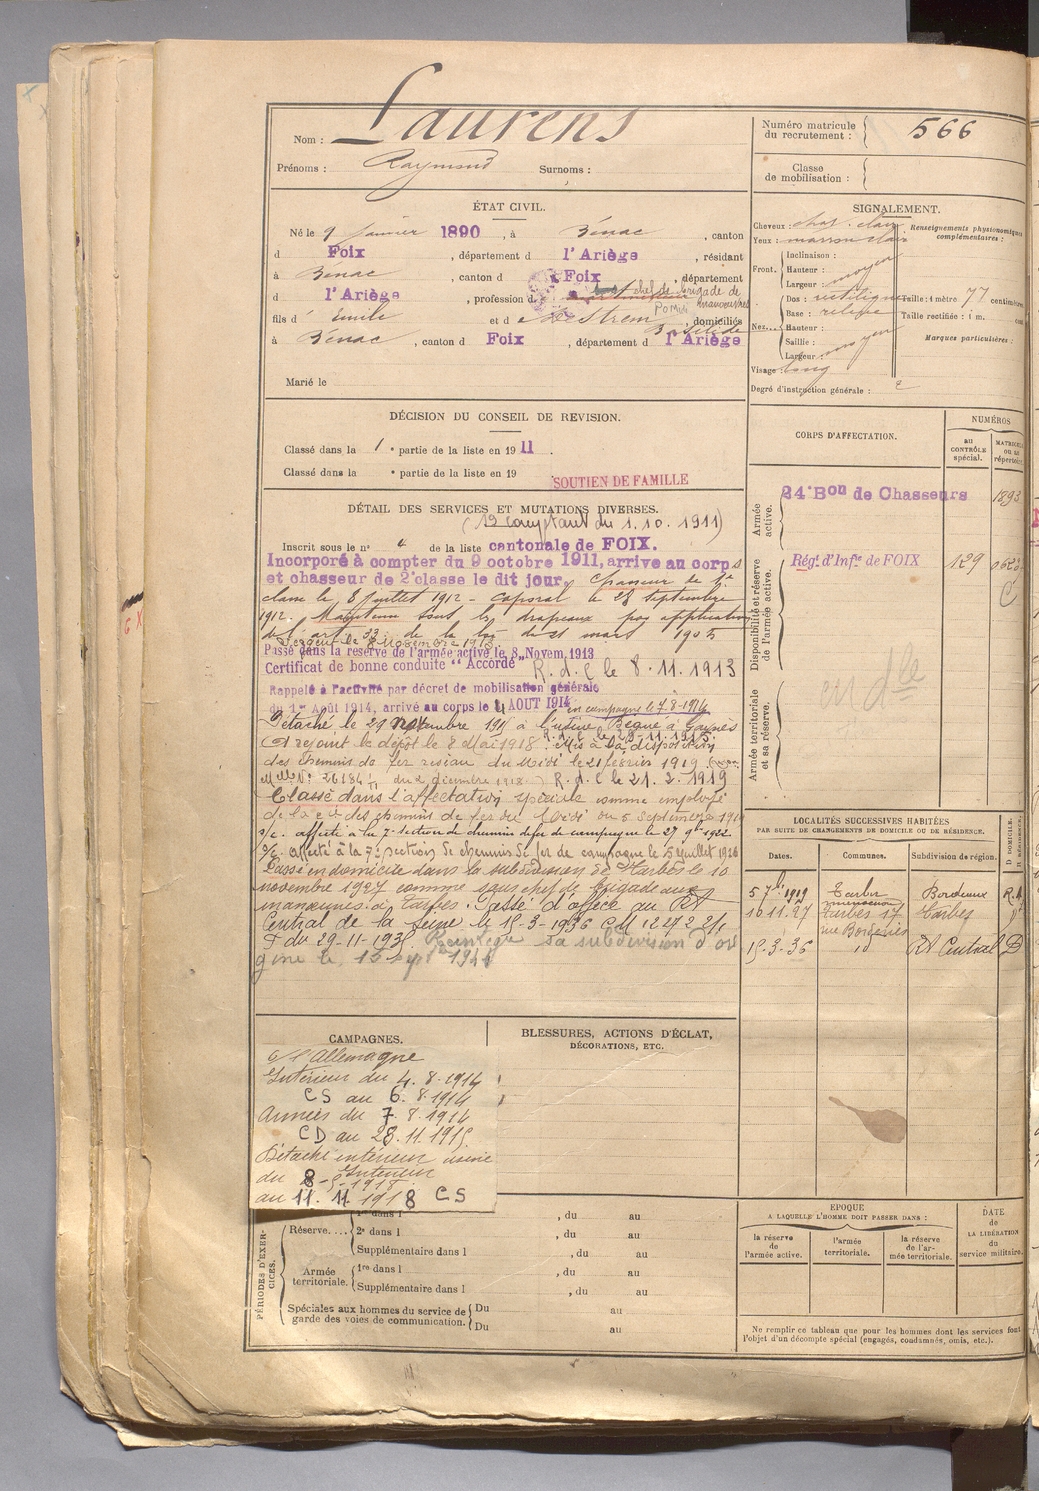 Nom : Laurens
Prénoms : Raymond Surnoms :
Numéro matricule du recrutement : 566
Classe de mobilisation :
ÉTAT CIVIL.
Né le 9 janvier 1890, à Bénac, canton
d Foix, département d l'Ariège, résidant
à Bénac, canton d Foix, département
d l'Ariège, profession d chef de brigade de
manœuvres
fils d Emile et d domiciliés
à Bénac, canton d Foix, département d l'Ariège
Marié le
SIGNALEMENT.
Cheveux chat. clair
Yeux : marron clair
Front. Inclinaison :
Hauteur : moyen
Largeur :
Nez... Dos : rectiligne
Base : relevé
Hauteur :
Saillie :
Largeur : moyen
Visage : long
Renseignements physionomiques complémentaires :
Taille : 1 mètre 77 centimètres
Taille rectifiée : 1 m. cent
Marques particulières :
Degré d'instruction générale : 2
DÉCISION DU CONSEIL DE REVISION.
Classé dans la 1e partie de la liste en 1911.
Classé dans la e partie de la liste en 19
SOUTIEN DE FAMILLE
DÉTAIL DES SERVICES ET MUTATIONS DIVERSES.
(12 comptant du 1.10.1911)
Inscrit sous le n° 4 de la liste cantonale de FOIX.
Incorporé à compter du 9 octobre 1911, arrive au corps
et chasseur de 2e classe le dit jour, Chasseur de 1e
classe le 8 juillet 1912 - caporal le 28 septembre
1912. Maintenu sous les drapeaux par application
de l'art 33 de la loi de 21 mars 1905
Passé dans la réserve de l'armée active le 8 Novem. 1913
Certificat de bonne conduite "Accordé" R.d.C le 8.11.1913
Rappelé à l'activité par décret de mobilisation générale
du 1er Août 1914, arrivé au corps le 4 AOUT 1914 en campagne le 7.8.1914
Détaché le 29 novembre 1915 à l'usine
R.d.C le 23.11.1915
rejoint le dépôt le 8 Mai 1918. Mis à la disposition
des chemins de fer réseau du Midi le 21 février 1919
Mlle N° 26184 du 2 décembre 1918 R.d.C le 21.2.1919
Classé dans l'affectation spéciale comme employé
de la Cie des chemins de fer du Midi du 5 septembre 1919
s/c. affecté à la 7e section de chemin de fer de campagne le 27 9bre 1922
s/c. affecté à la 7e section de chemins de fer de campagne le 15 juillet 1926
Passé en domicile dans la subdivision de Tarbes le 10
novembre 1927 comme sous chef de brigade aux
manœuvres à Tarbes. Passé d'office au Rt
Central de la Seine le 15-3-1936 CM 12272 2/1
du 29-11-193 Réintègre sa subdivision d'ori
gine le 15 sept
CORPS D'AFFECTATION.
NUMÉROS
au CONTRÔLE spécial.
MATRICULE ou au répertoire
Armée active.
24e Bon de Chasseurs 1893
Disponibilité et réserve de l'armée active.
Régt d'Infie de FOIX 129
Armée territoriale et sa réserve.
LOCALITÉS SUCCESSIVES HABITÉES
PAR SUITE DE CHANGEMENTS DE DOMICILE OU DE RÉSIDENCE.
Dates. Communes. Subdivision de région. D. DOMICILE. R. RÉSIDENCE.
5 7b 1919 Tarbes Bordeaux R.
10.11.27 Tarbes 17 Tarbes
rue
15-3-36 Rt Central D
CAMPAGNES.
Ct l'Allemagne
Intérieur du 4.8.1914
CS au 6.8.1914
Armées du 7.8.1914
CD au 28.11.1915
Détaché intérieur usine
Intérieur
du 8-5-1918
au 11.11.1918 CS
BLESSURES, ACTIONS D'ÉCLAT,
DÉCORATIONS, ETC.
PÉRIODES D'EXERCICES.
1re dans l , du au
Réserve.... 2e dans l , du au
Supplémentaire dans l , du au
Armée territoriale. 1re dans l , du au
Supplémentaire dans l , du au
Spéciales aux hommes du service de garde des voies de communication. Du au
Du au
EPOQUE
A LAQUELLE L'HOMME DOIT PASSER DANS :
la réserve de l'armée active.
l'armée territoriale.
la réserve de l'armée territoriale.
DATE de LA LIBÉRATION du service militaire.
Ne remplir ce tableau que pour les hommes dont les services font
l'objet d'un décompte spécial (engagés, condamnés, omis, etc.).